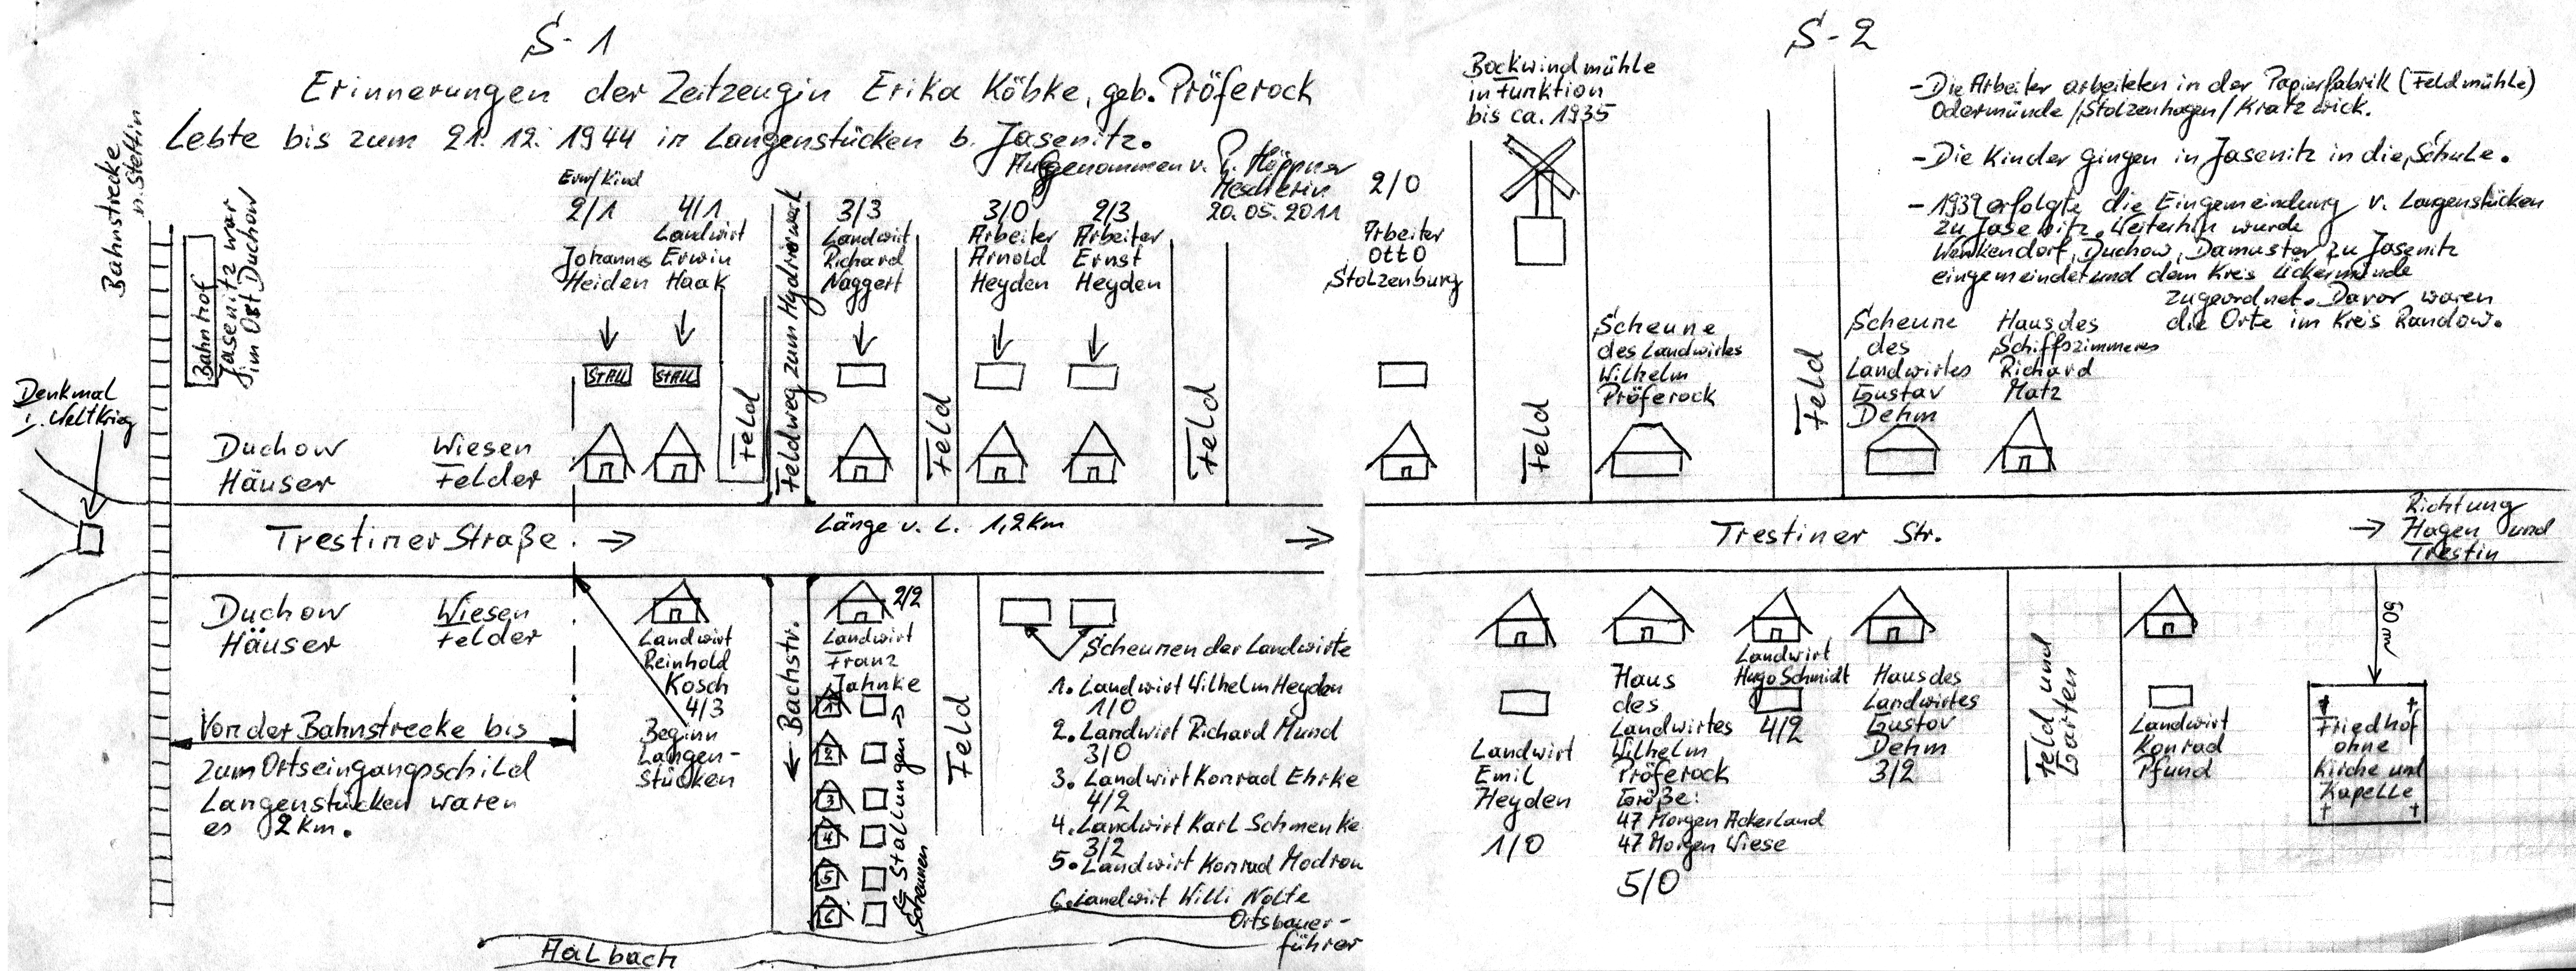 S-1
Erinnerungen der Zeitzeugin Erika Köbke, geb. Pröferock
Lebte bis zum 21.12.1944 in Langenstücken b. Jasenitz.
Aufgenommen v. P. Höppner
Mescherin
20.05.2011
Bahnstrecke
n. Stettin
Bahnhof
Jasenitz war
im Ort Duchow
Denkmal
1. Weltkrieg
Duchow
Häuser
Wiesen
Felder
Erw/Kind
2/1
Johannes
Heiden
STALL
4/1
Landwirt
Erwin
Haak
STALL
Feld
Feldweg zum Hydrierwerk
3/3
Landwirt
Richard
Naggert
Feld
3/0
Arbeiter
Arnold
Heyden
2/3
Arbeiter
Ernst
Heyden
Feld
Trestiner Straße
Länge v. L. 1,2 Km
Duchow
Häuser
Wiesen
Felder
Von der Bahnstrecke bis
zum Ortseingangsschild
Langenstücken waren
es 2 Km.
Landwirt
Reinhold
Kosch
4/3
Beginn
Langen-
stücken
Bachstr.
2/2
Landwirt
Franz
Jahnke
1
2
3
4
5
6
Stallungen
Scheunen
Feld
Scheunen der Landwirte
1. Landwirt Wilhelm Heyden
1/0
2. Landwirt Richard Mund
3/0
3. Landwirt Konrad Ehrke
4/2
4. Landwirt Karl Schmenke
3/2
5. Landwirt Konrad Modrow
6. Landwirt Willi Nolte
Ortsbauer-
führer
Aalbach
S-2
2/0
Arbeiter
Otto
Stolzenburg
Bockwindmühle
in Funktion
bis ca. 1935
Feld
Scheune
des Landwirtes
Wilhelm
Pröferock
Feld
- Die Arbeiter arbeiteten in der Papierfabrik (Feldmühle)
Odermünde/Stolzenhagen/Kratzwick.
- Die Kinder gingen in Jasenitz in die Schule.
- 1939 erfolgte die Eingemeindung v. Langenstücken
zu Jasenitz. Weiterhin wurde
Wenkendorf, Duchow, Damuster zu Jasenitz
eingemeindet und dem Kreis Ückermünde
zugeordnet. Davor waren
die Orte im Kreis Randow.
Scheune
des
Landwirtes
Gustav
Dehm
Haus des
Schiffszimmeres
Richard
Matz
Trestiner Str.
Richtung
Hagen und
Trestin
Landwirt
Emil
Heyden
1/0
Haus
des
Landwirtes
Wilhelm
Pröferock
Größe:
47 Morgen Ackerland
47 Morgen Wiese
5/0
Landwirt
Hugo Schmidt
4/2
Haus des
Landwirtes
Gustav
Dehm
3/2
Feld und
Garten
Landwirt
Konrad
Pfund
50 m
Friedhof
ohne
Kirche und
Kapelle